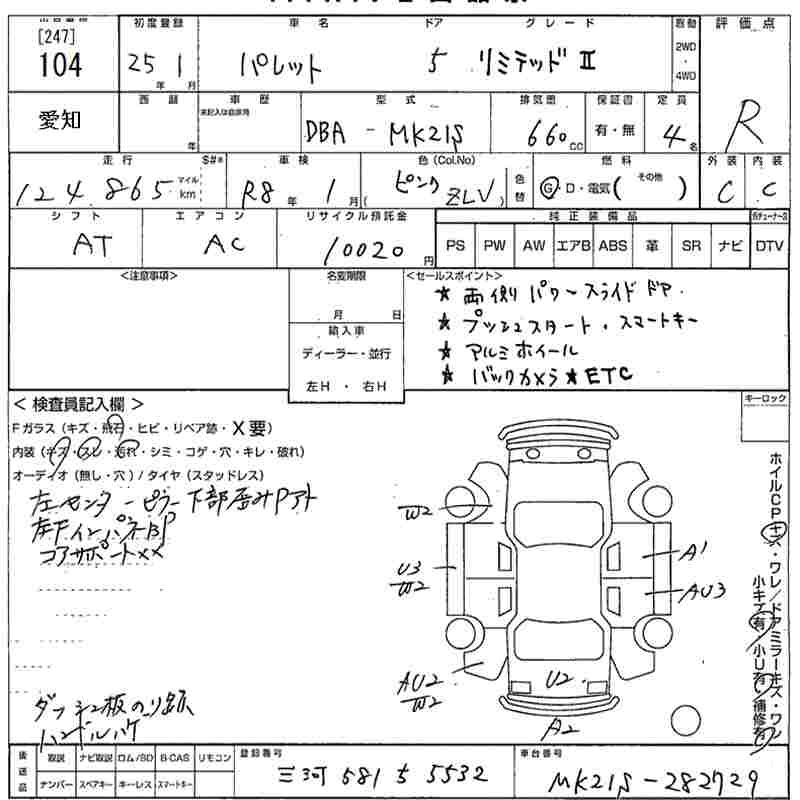 [247]
104
愛知
初度登録
25年 1月
車名
パレット
ドア
5
グレード
リミテッドⅡ
駆動
2WD
・
4WD
評価点
R
西暦
年
車歴
未記入は自家用
型式
DBA - MK21S
排気量
660 cc
保証書
有・無
定員
4名
走行
124,865
マイル
km
S#*
車検
R8年 1月
色(Col.No)
(ピンク ZLV)
色替
燃料
G・D・電気( その他 )
外装
C
内装
C
シフト
AT
エアコン
AC
リサイクル預託金
10020円
純正装備品
PS PW AW エアB ABS 革 SR ナビ
地デジチューナー
DTV
<注意事項>
名変期限
月 日
輸入車
ディーラー・並行
左H ・ 右H
<セールスポイント>
★ 両側パワースライドドア.
★ プッシュスタート・スマートキー
★ アルミホイール
★ バックカメラ★ETC
キーロック
< 検査員記入欄 >
Fガラス(キズ・飛石・ヒビ・リペア跡・X要)
内装(キズ・スレ・汚れ・シミ・コゲ・穴・キレ・破れ)
オーディオ(無し・穴)/タイヤ(スタッドレス)
左センターピラー下部凹みPアト
左Fインパネ BP
コアサポート××
W2
U3
W2
AU2
W2
A1
AU3
U2
A2
ホイルCPキズ・ワレ/ドアミラーキズ・ワレ
小キズ有・小U有・補修有
ダッシュ板のり跡
ハンドルハゲ
後送品
取説 ナビ取説 ロム/SD B-CAS リモコン
ナンバー スペアキー キーレス スマートキー
登録番号
三河 581 ち 5532
車台番号
MK21S-282729